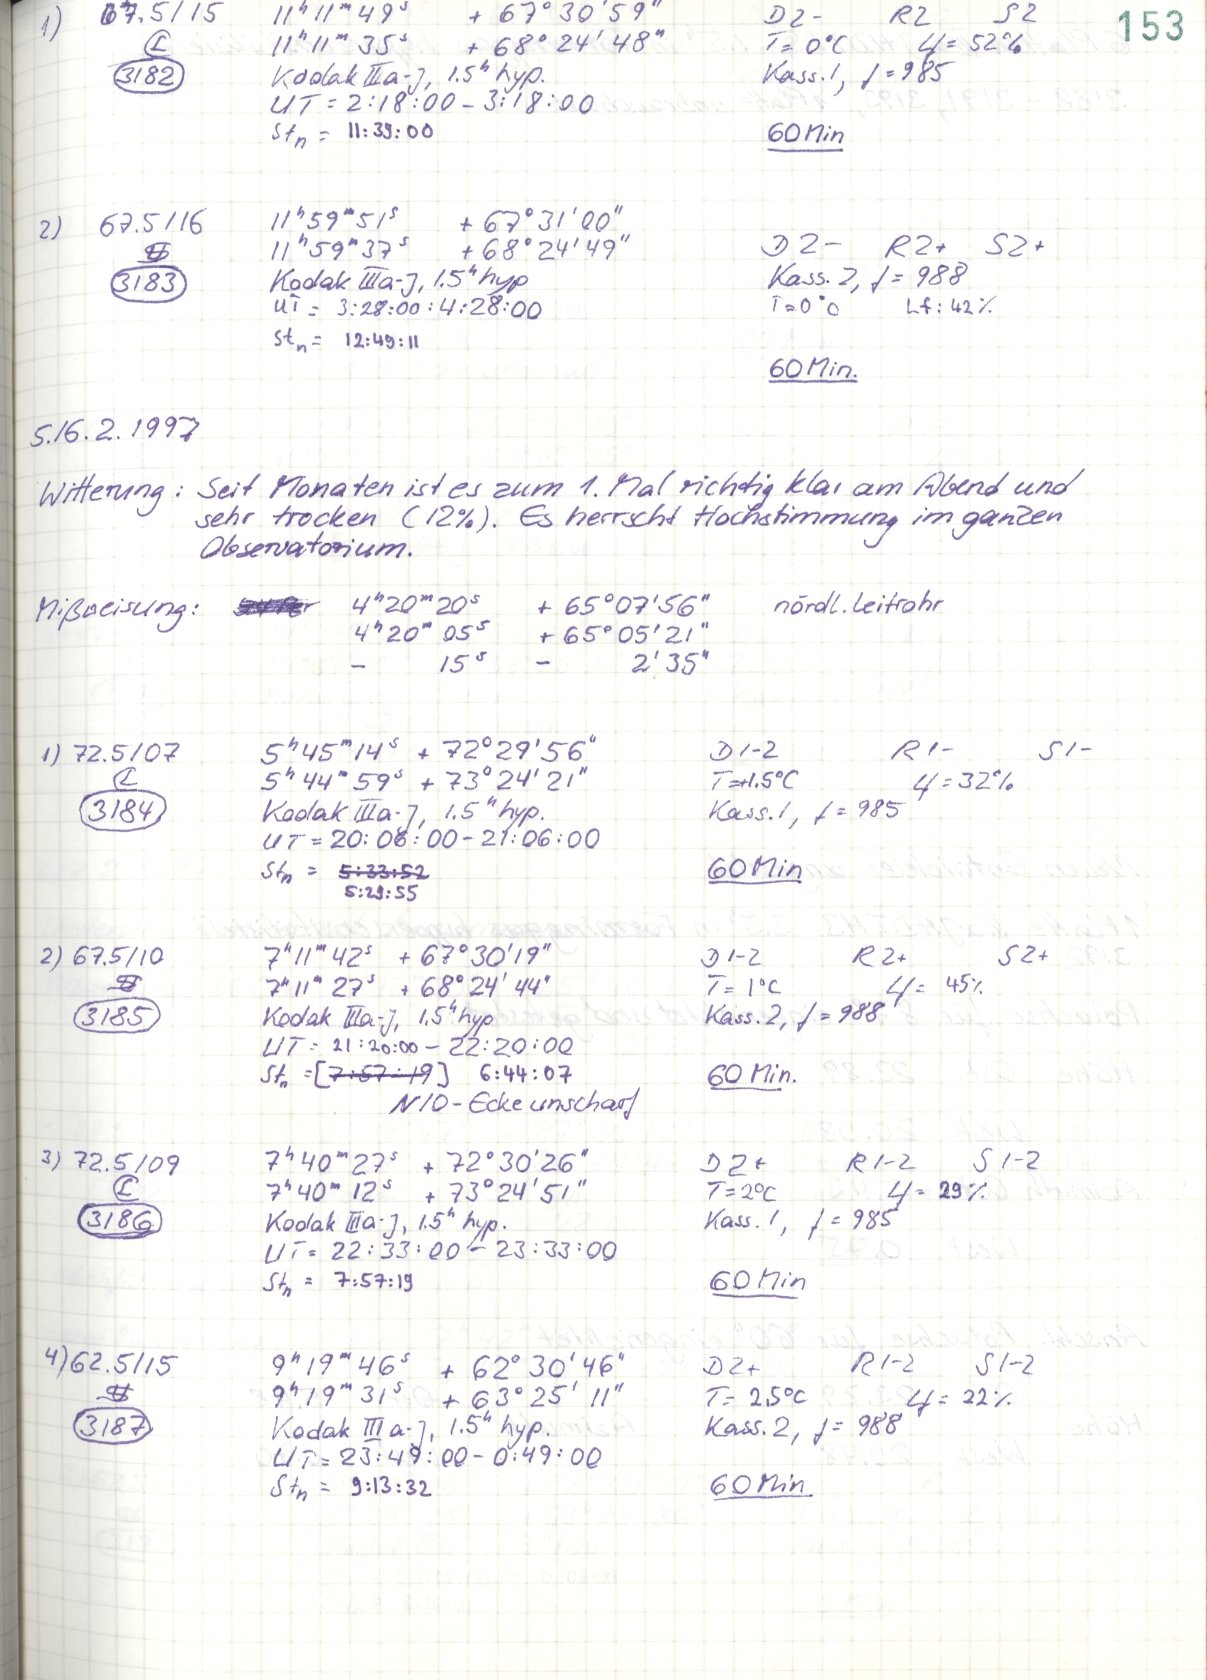 153
1) 67.5/15 11ʰ11ᵐ49ˢ + 67°30'59" D2- R2 S2
11ʰ11ᵐ35ˢ + 68°24'48" T=0°C 4=52%
3182 Kodak IIIa-J, 1.5ʰ hyp. Kass.1, f=985
UT = 2:18:00 - 3:18:00
Stₙ = 11:39:00 60 Min
2) 67.5/16 11ʰ59ᵐ51ˢ + 67°31'00"
11ʰ59ᵐ37ˢ + 68°24'49" D2- R2+ S2+
3183 Kodak IIIa-J, 1.5ʰ hyp Kass.2, f=988
UT = 3:28:00:4:28:00 T=0°C Lf: 42%
Stₙ = 12:49:11
60 Min.
5./6.2.1997
Witterung: Seit Monaten ist es zum 1. Mal richtig klar am Abend und
sehr trocken (12%). Es herrscht Hochstimmung im ganzen
Observatorium.
Mißweisung: 4ʰ20ᵐ20ˢ + 65°07'56" nördl. Leitrohr
4ʰ20ᵐ05ˢ + 65°05'21"
- 15ˢ - 2'35"
1) 72.5/07 5ʰ45ᵐ14ˢ + 72°29'56" D1-2 R1- S1-
5ʰ44ᵐ59ˢ + 73°24'21" T=+1.5°C 4=32%
3184 Kodak IIIa-J, 1.5ʰ hyp. Kass.1, f=985
UT = 20:06:00 - 21:06:00
Stₙ = 5:33:52 60 Min
5:29:55
2) 67.5/10 7ʰ11ᵐ42ˢ + 67°30'19" D1-2 R2+ S2+
7ʰ11ᵐ27ˢ + 68°24'44" T=1°C 4=45%
3185 Kodak IIIa-J, 1.5ʰ hyp Kass.2, f=988
UT = 21:20:00 - 22:20:00
Stₙ = [7:57:19] 6:44:07 60 Min.
N/O-Ecke unscharf
3) 72.5/09 7ʰ40ᵐ27ˢ + 72°30'26" D2+ R1-2 S1-2
7ʰ40ᵐ12ˢ + 73°24'51" T=2°C 4=29%
3186 Kodak IIIa-J, 1.5ʰ hyp. Kass.1, f=985
UT = 22:33:00 - 23:33:00
Stₙ = 7:57:19 60 Min
4) 62.5/15 9ʰ19ᵐ46ˢ + 62°30'46" D2+ R1-2 S1-2
9ʰ19ᵐ31ˢ + 63°25'11" T=2.5°C 4=22%
3187 Kodak IIIa-J, 1.5ʰ hyp. Kass.2, f=988
UT = 23:49:00 - 0:49:00
Stₙ = 9:13:32 60 Min